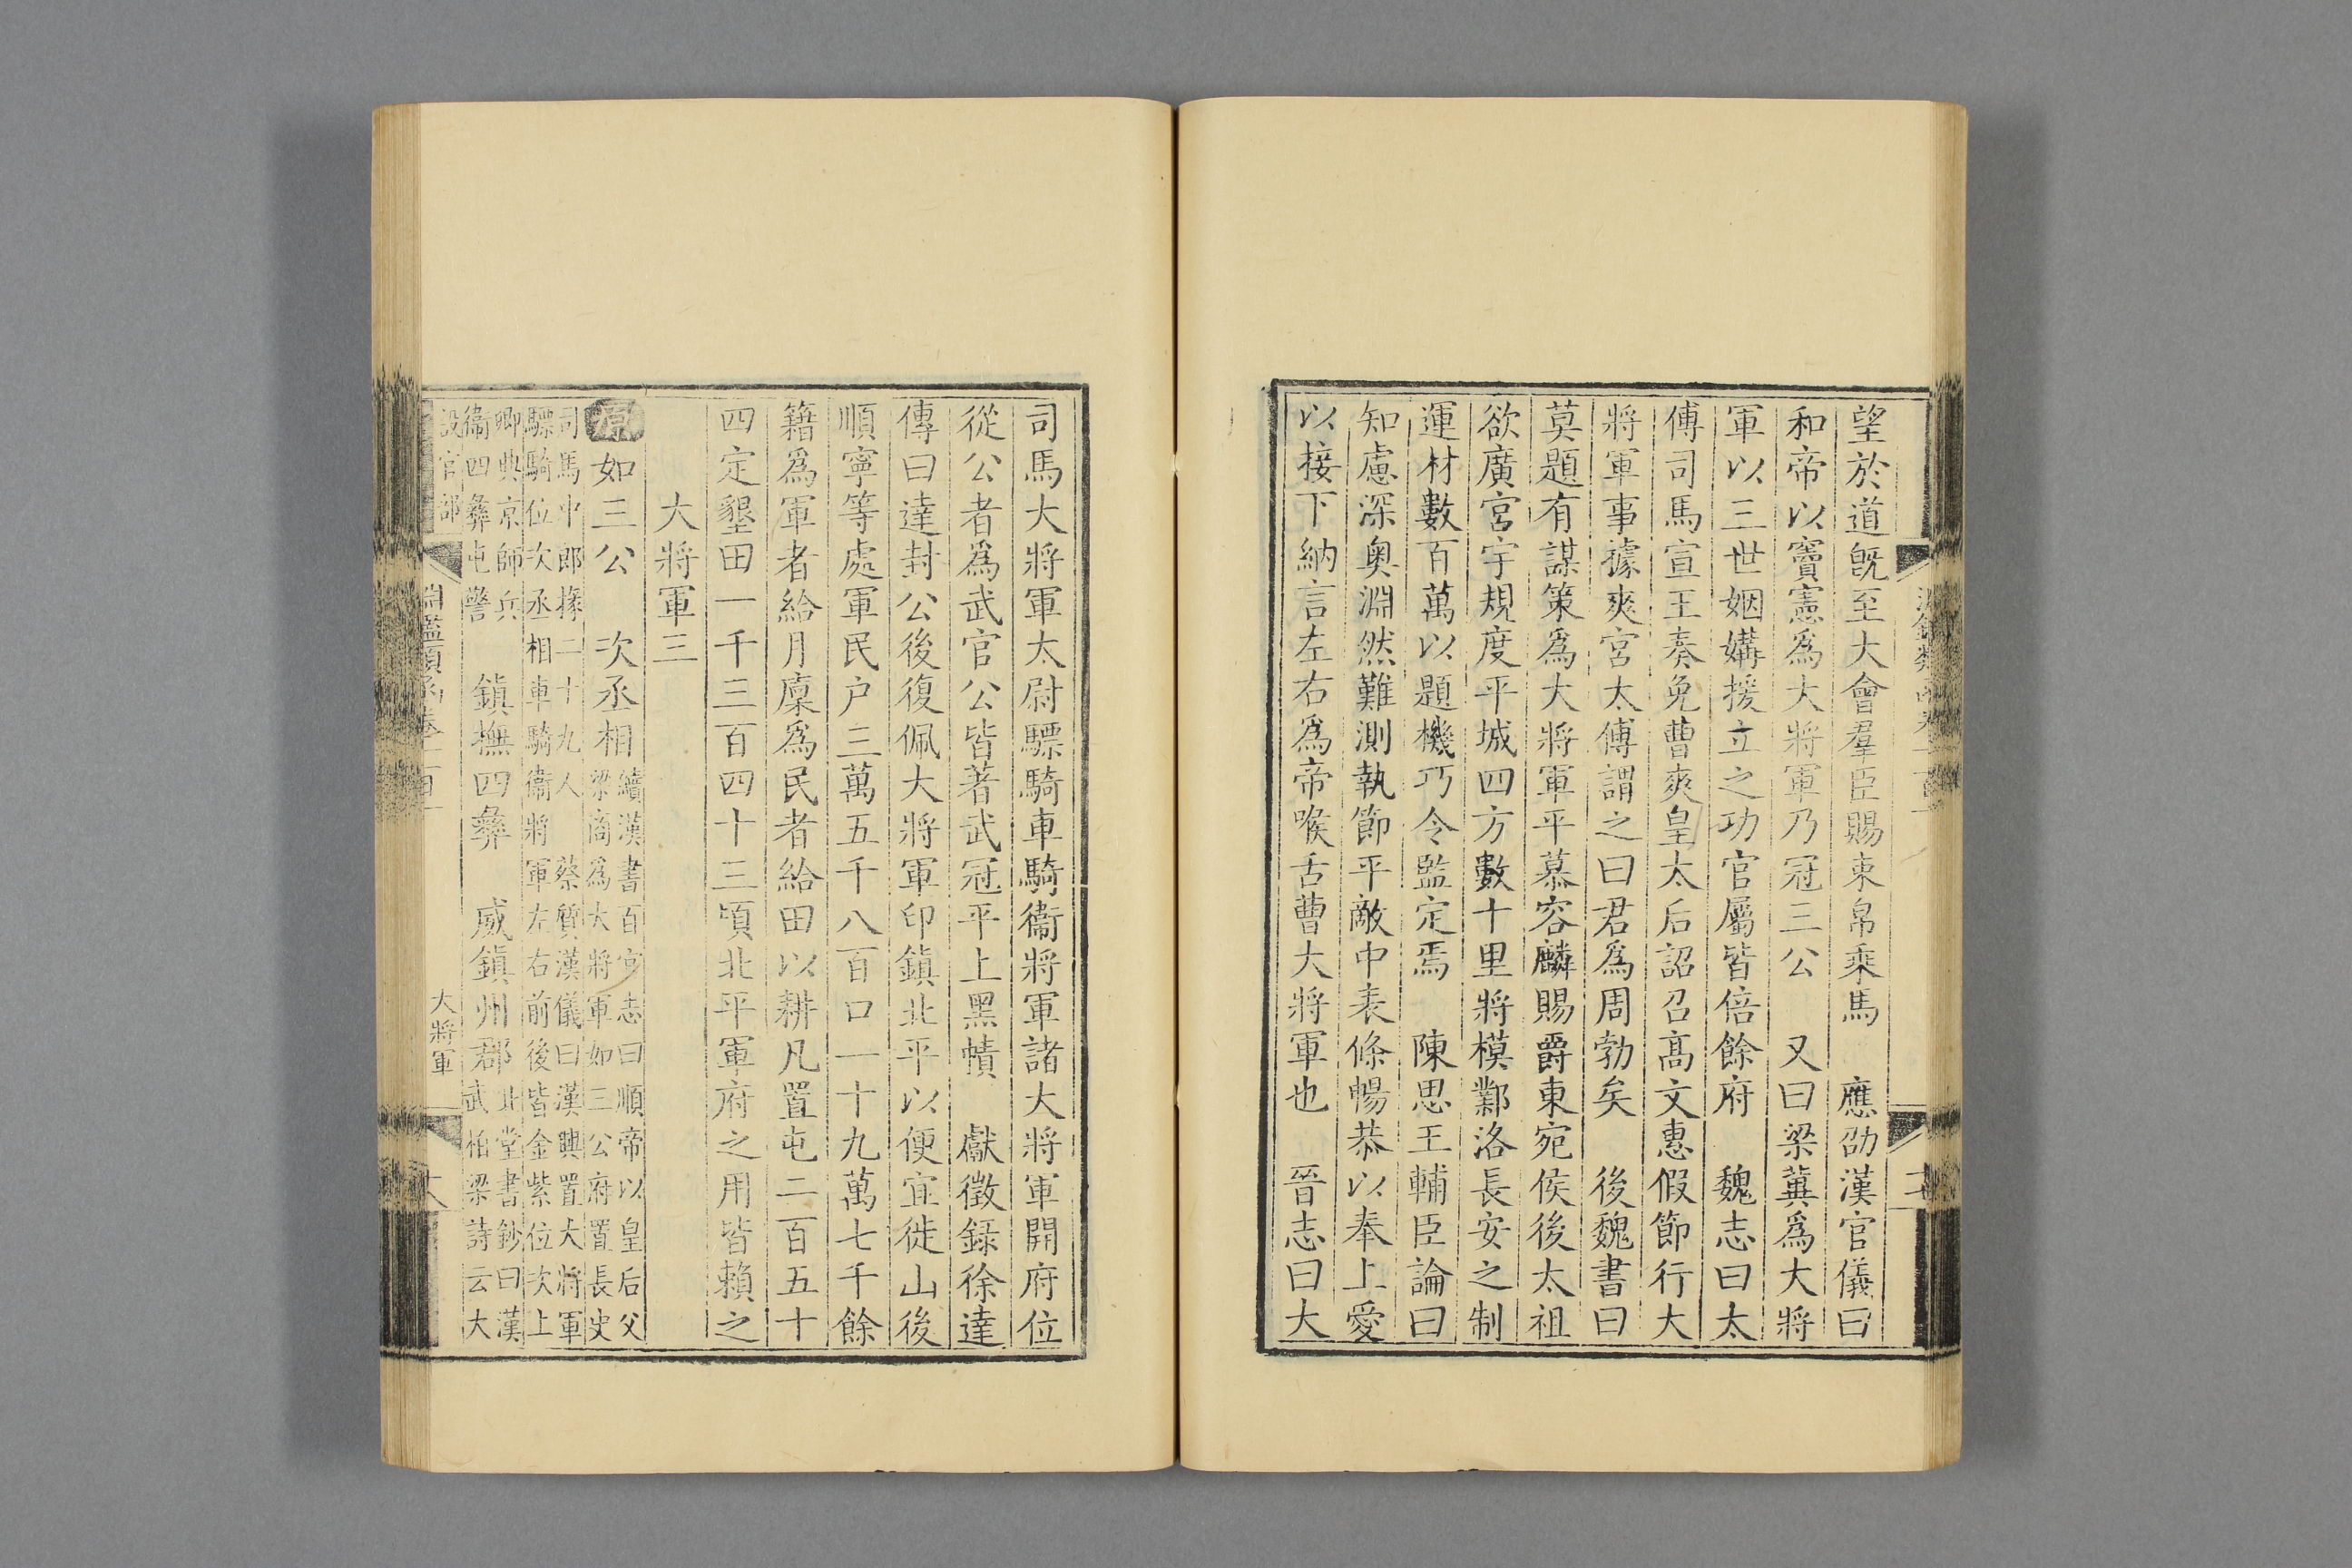 望於道既至大會羣臣賜束帛乘馬　應劭漢官儀曰
和帝以竇憲爲大將軍乃冠三公　又曰梁冀爲大將
軍以三世姻媾援立之功官屬皆倍餘府　魏志曰太
傅司馬宣王奏免曹爽皇太后詔召髙文惠假節行大
將軍事據爽宮太傅謂之曰君爲周勃矣　後魏書曰
莫題有謀策爲大將軍平慕容麟賜爵東宛侯後太祖
欲廣宮宇規度平城四方數十里將模鄴洛長安之制
運材數百萬以題機巧令監定焉　陳思王輔臣論曰
知慮深奥淵然難測執節平敵中表條暢恭以奉上愛
以接下納言左右爲帝喉舌曹大將軍也　晉志曰大
司馬大將軍太尉驃騎車騎衞將軍諸大將軍開府位
從公者爲武官公皆著武冠平上黑幘　獻徵録徐達
傳曰達封公後復佩大將軍印鎮北平以便宜徙山後
順寧等處軍民户三萬五千八百口一十九萬七千餘
籍爲軍者給月廩爲民者給田以耕凡置屯二百五十
四定墾田一千三百四十三頃北平軍府之用皆賴之
大將軍三
原如三公　次丞相
續漢書百官志曰順帝以皇后父
梁商爲大將軍如三公府置長史
司馬中郎掾二十九人　蔡質漢儀曰漢興置大將軍
驃騎位次丞相車騎衞將軍左右前後皆金紫位次上
卿典京師兵
衞四彝屯警
鎮撫四彝　威鎮州郡
北堂書鈔曰漢
武柏梁詩云大
設官部
淵鑑類函卷一百
大將軍